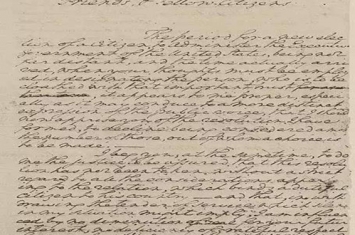 Friends, & Fellow-Citizens
The period for a new elec-
tion of a Citizen, to administer the Executive
government of the United States, being not
far distant, and the time actually arri-
ved, when your thoughts must be employ-
ed in designating the person, who is to be
cloathed with that important trust
it appears to me proper, espe-
cially as it may conduce to a more distinct
expression of the public voice, that I should
now apprise you of the resolution I have
formed, to decline being considered among
the number of those, out of whom a choice is
to be made.
I beg you, at the same time, to do
me the justice to be assured, that this resolu-
tion has not been taken, without a strict
regard to all the considerations appertain-
ing to the relation, which binds a dutiful
citizen to his country — and that, in with-
drawing the tender of service which silence
in my situation might imply, I am influen-
ced by no diminution of zeal for your future
interest, no deficiency of grateful respect